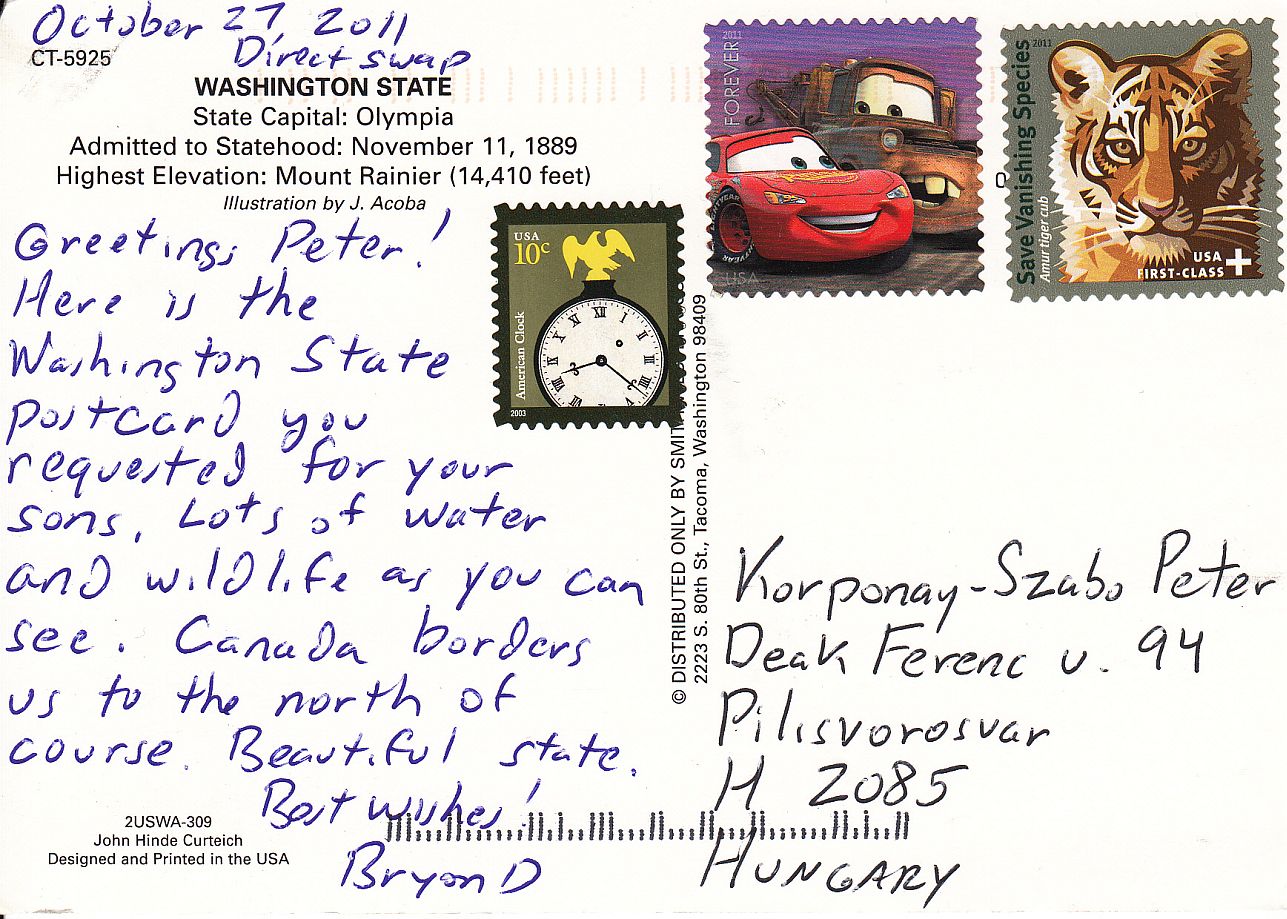 October 27, 2011
Direct swap
CT-5925
WASHINGTON STATE
State Capital: Olympia
Admitted to Statehood: November 11, 1889
Highest Elevation: Mount Rainier (14,410 feet)
Illustration by J. Acoba
Greetings Peter!
Here is the
Washington State
postcard you
requested for your
sons. Lots of water
and wildlife as you can
see. Canada borders
us to the north of
course. Beautiful state.
Best wishes!
Bryon D
2USWA-309
John Hinde Curteich
Designed and Printed in the USA
USA
10c
American Clock
2003
XII
I
II
III
© DISTRIBUTED ONLY BY SMITH
2223 S. 80th St., Tacoma, Washington 98409
2011
FOREVER
USA
GOODYEAR
2011
Save Vanishing Species
Amur tiger cub
USA
FIRST-CLASS+
Korponay-Szabo Peter
Deak Ferenc u. 94
Pilisvorosvar
H 2085
HUNGARY